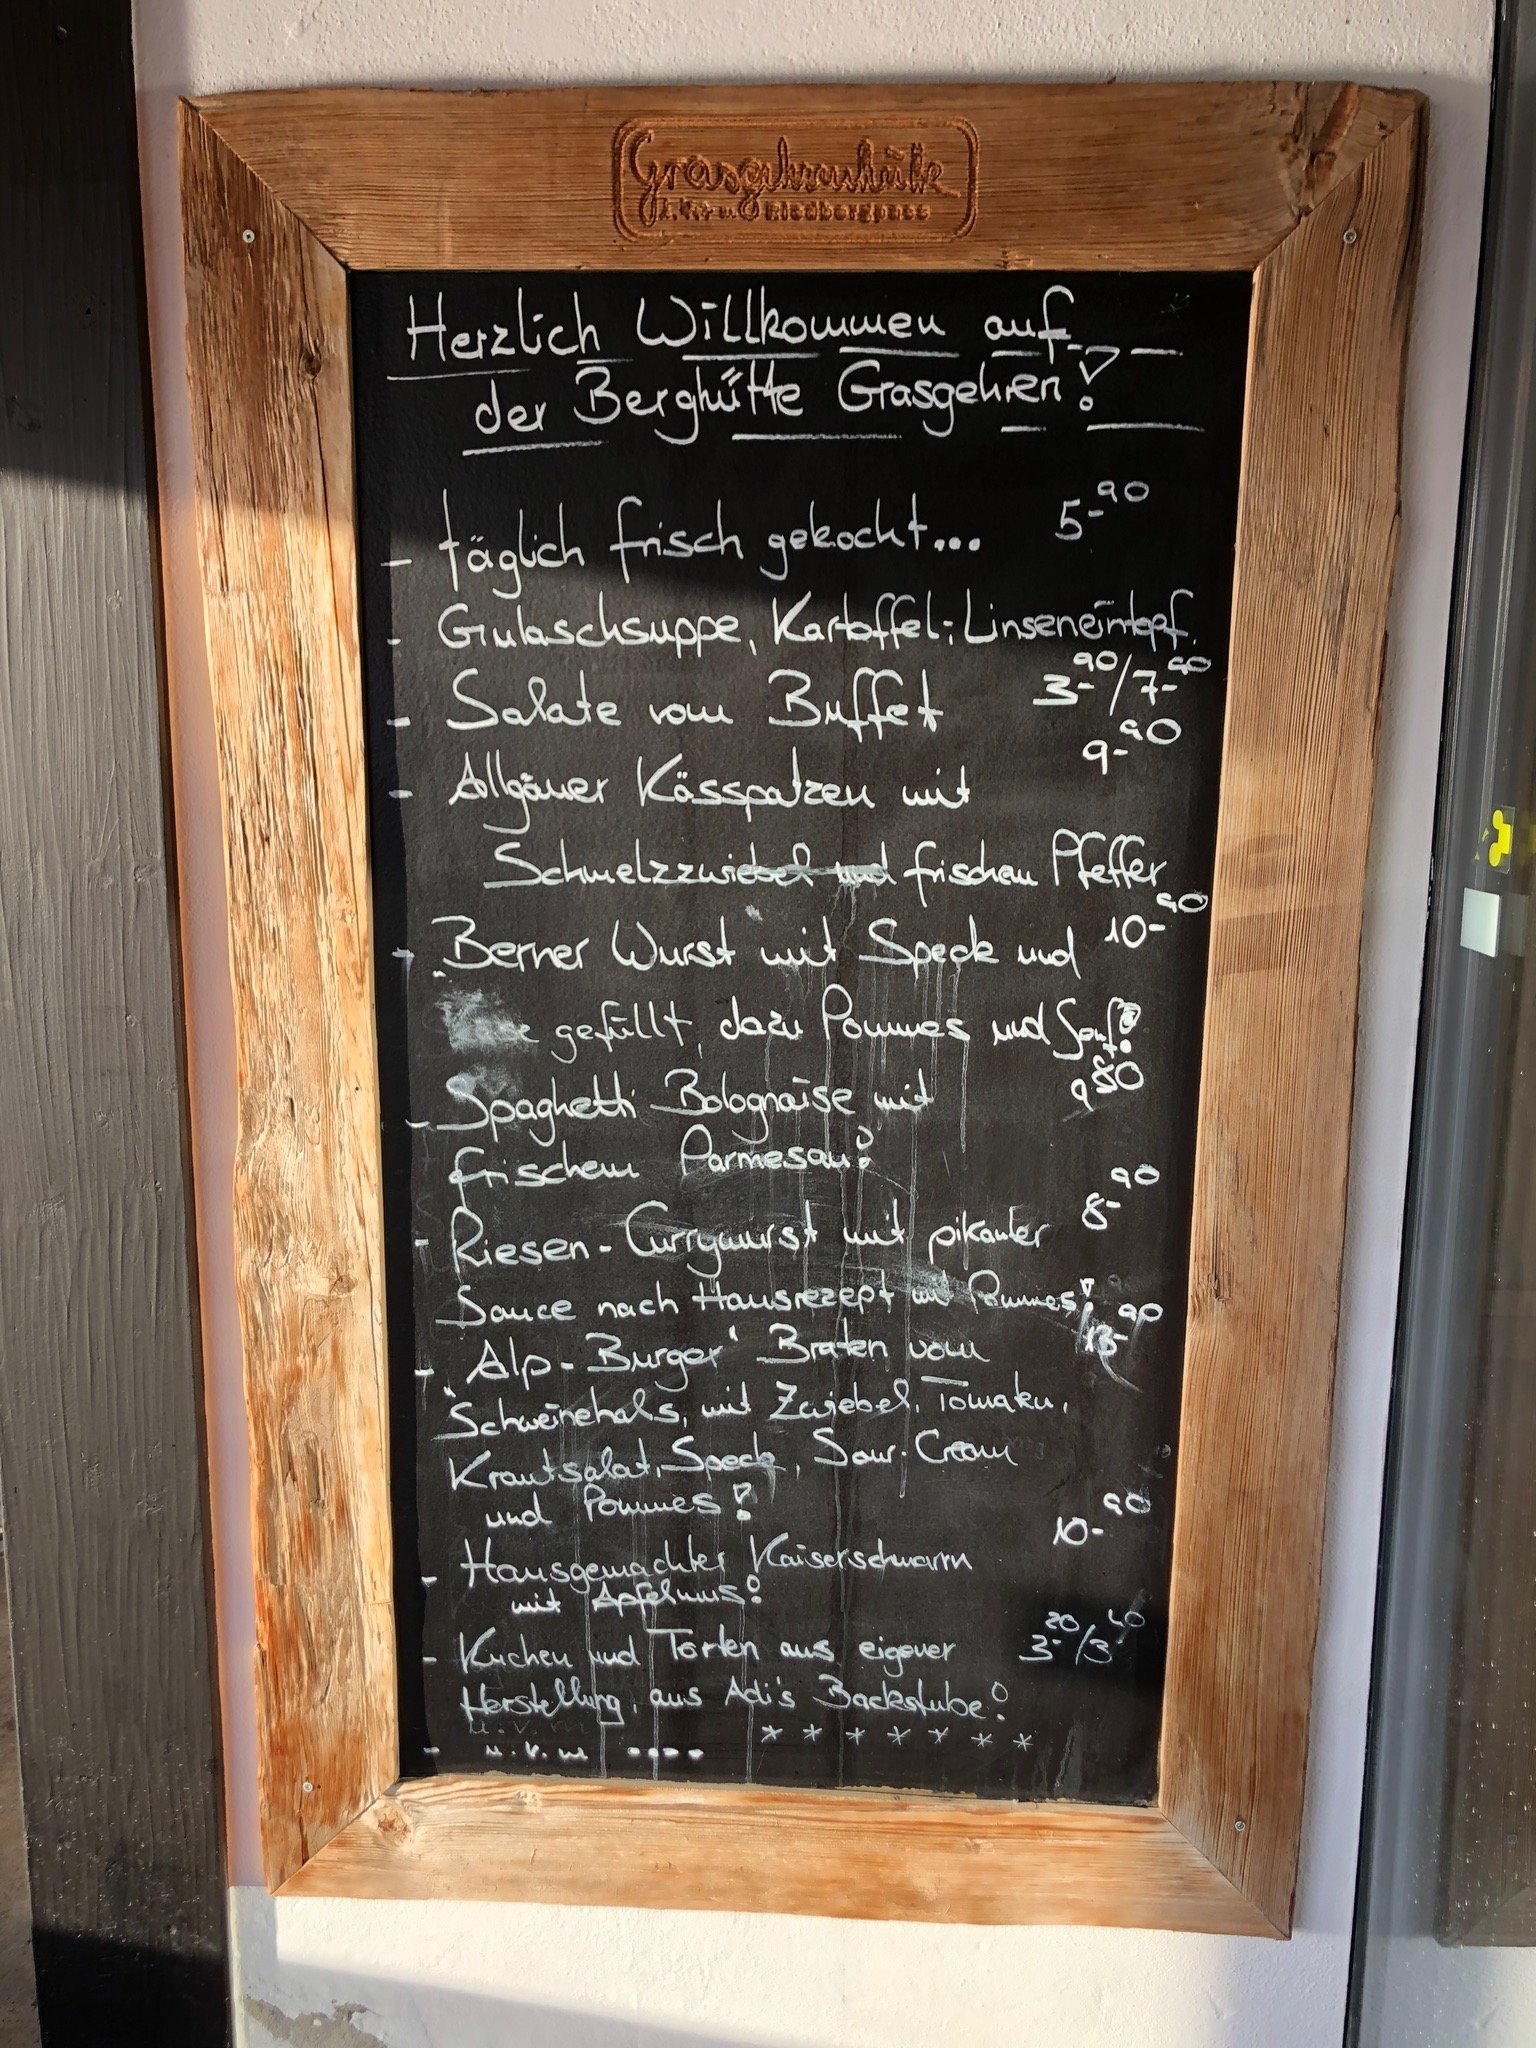 Grasgehrenhütte
Riedbergpass
Herzlich Willkommen auf
der Berghütte Grasgehren!
- täglich frisch gekocht... 5-90
- Gulaschsuppe, Kartoffel-, Linseneintopf.
- Salate vom Buffet 3-90/7-90
- Allgäuer Kässpatzen mit 9-90
Schmelzzwiebel und frischem Pfeffer
- "Berner Wurst mit Speck und 10-90
gefüllt, dazu Pommes und Senf!
- Spaghetti Bolognaise mit 9 80
frischem Parmesan!
- Riesen-Currywurst mit pikanter 8-90
Sauce nach Hausrezept Pommes!
- "Alp-Burger" Braten vom 13-90
Schweinehals, mit Zwiebel, Tomaten,
Krautsalat, Speck, Sour-Cream
und Pommes!
- Hausgemachter Kaiserschmarrn 10-90
mit Apfelmus!
- Kuchen und Torten aus eigener 3-20/3-40
Herstellung, aus Adi's Backstube!
- u.v.m .... * * * * * * *